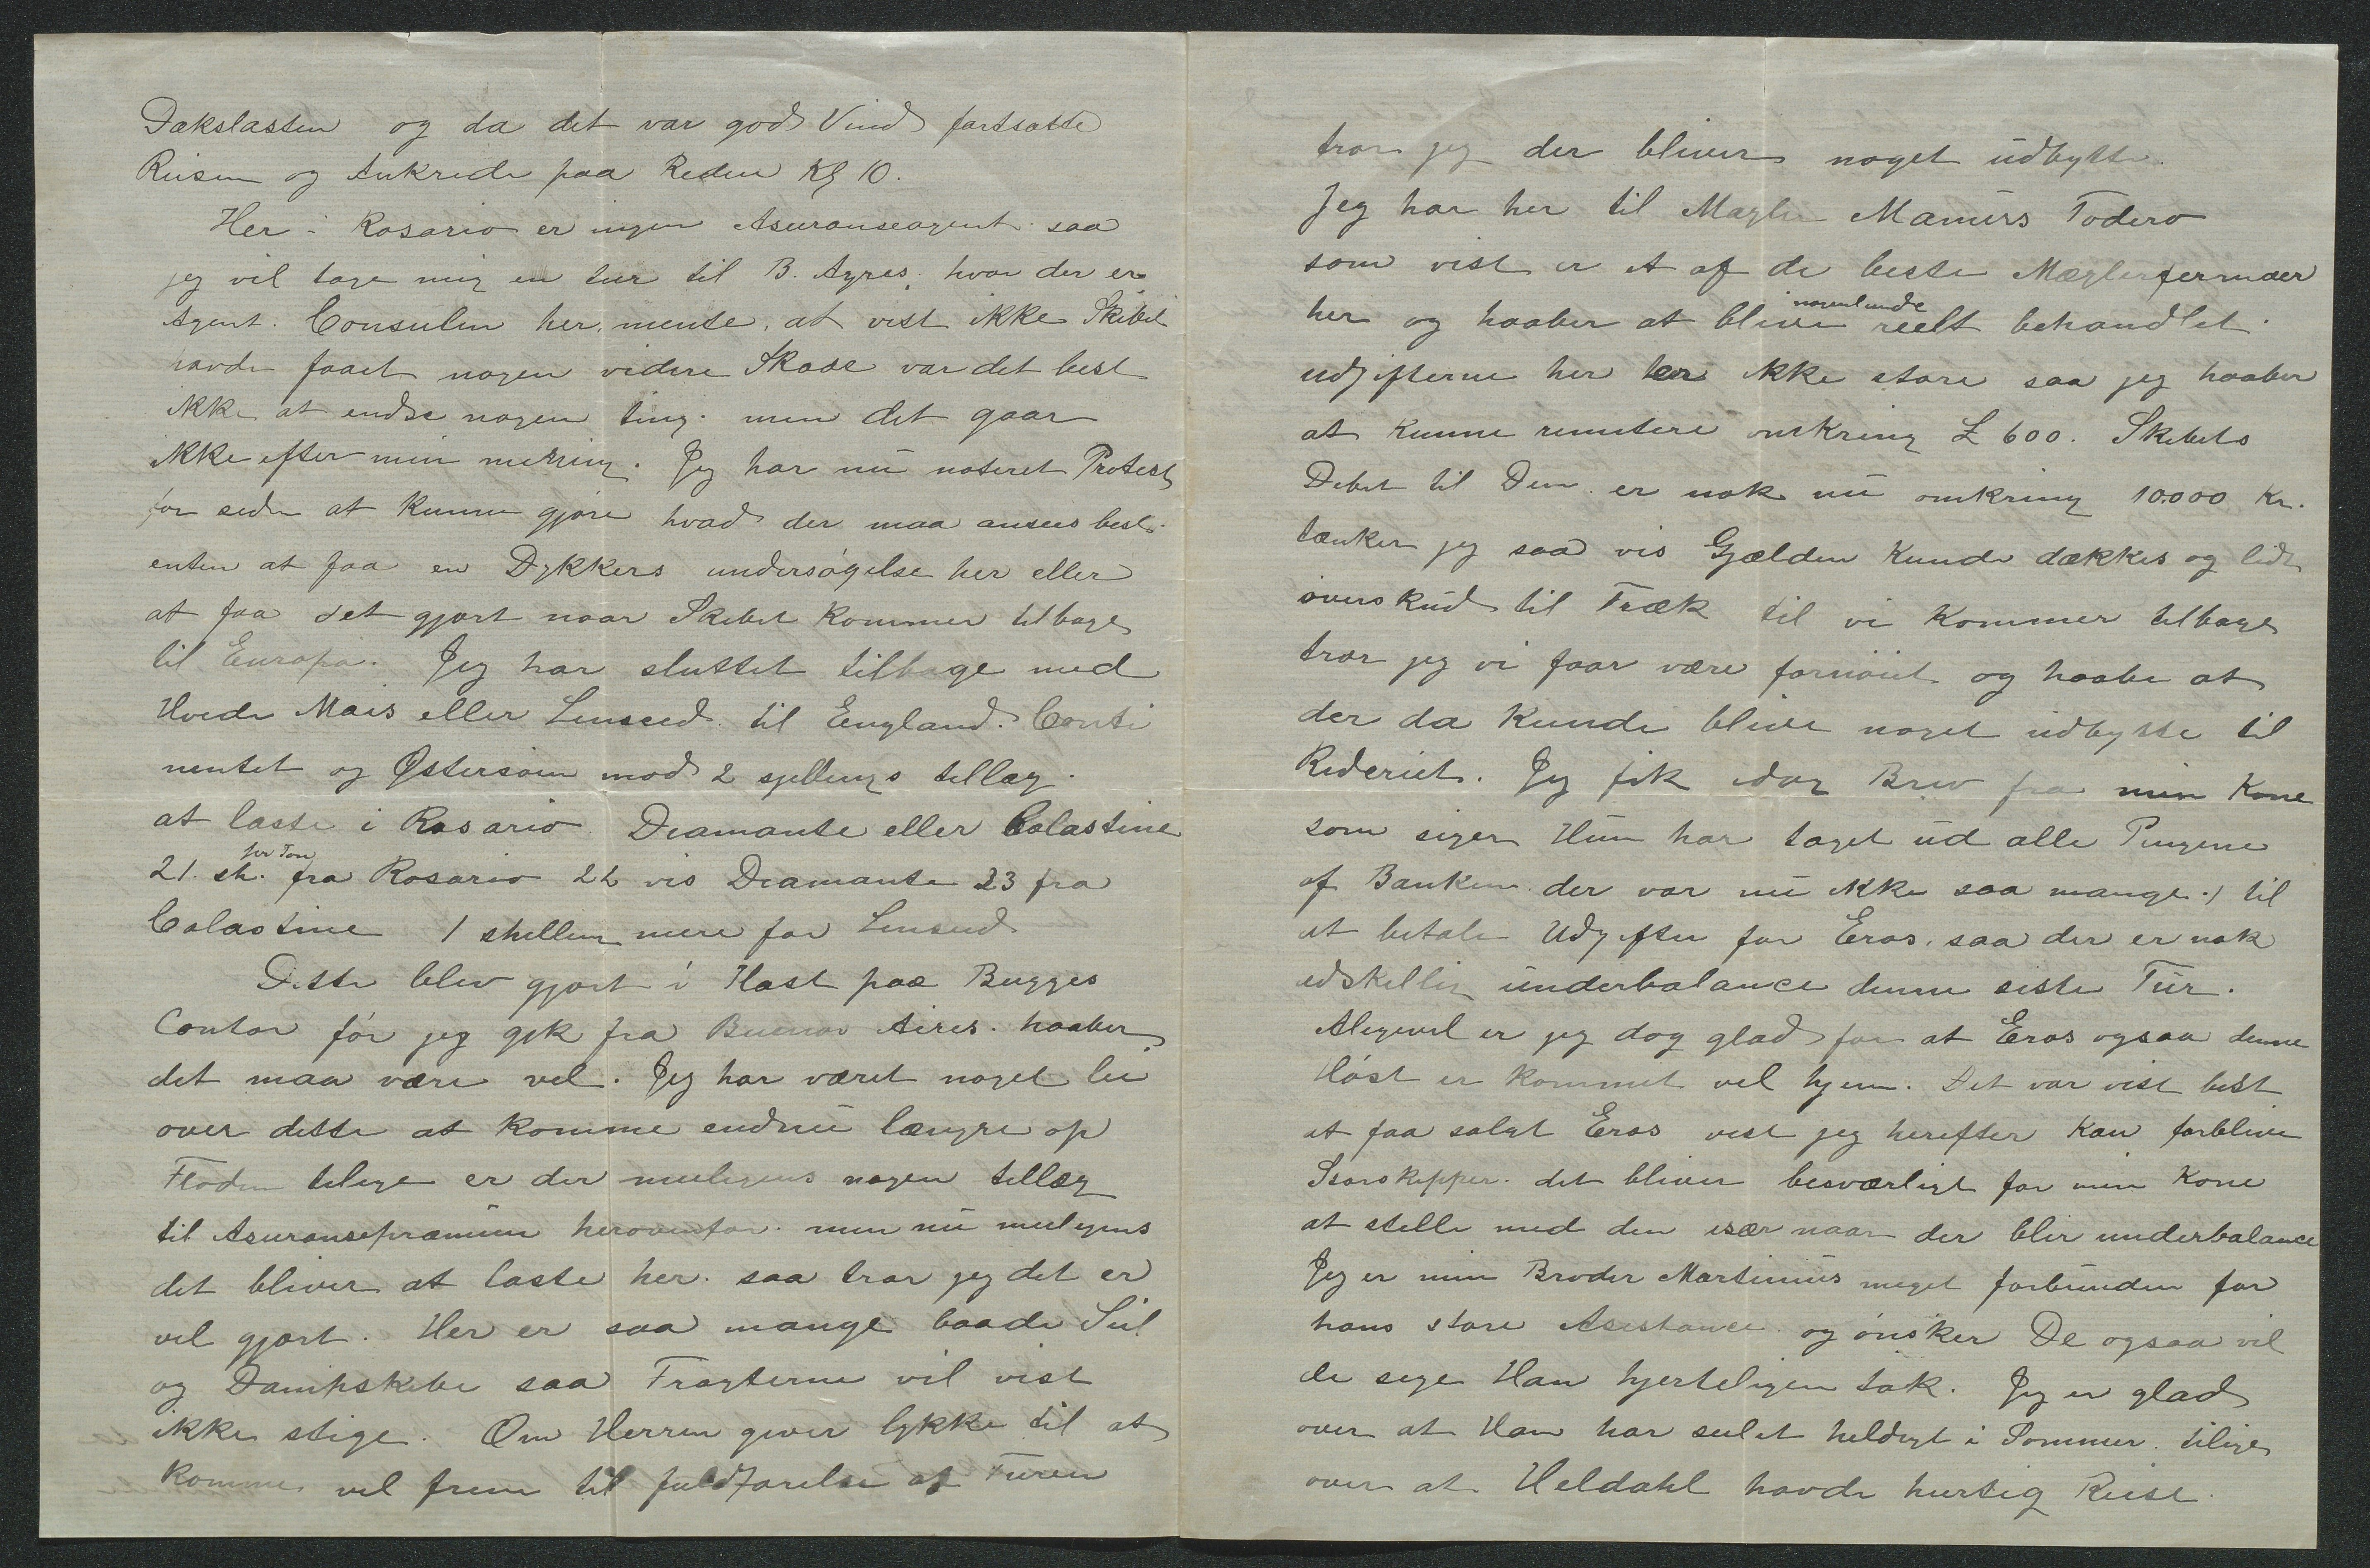 Dækslasten og da det var god Vind fortsatte
Reisen og Ankrede paa Reden Kl 10.
Her i Rosario er ingen Asuranseagent saa
jeg vil tage mig en tur til B. Ayres, hvor der er
Agent. Consulen her, mente, at vist ikke Skibet
havde faaet nogen videre Skade var det best
ikke at endse nogen ting. men det gaar
ikke efter min mening. Jeg har nu noteret Protest
for seden at kunne gjøre hvad der maa ansees best.
enten at faa en Dykkers undersøgelse her eller
at faa det gjort naar Skibet kommer tilbage
til Europa. Jeg har sluttet tilbage med
Hvede Mais eller Linseed til England. Conti
nentet og Østersøen mod 2 sjellings tillæg.
at laste i Rosario Diamante eller Colastine
21. sh. pr Ton fra Rosario 22 vis Diamante 23 fra
Colastine 1 shelling mere for Linseed
Dette blev gjort i Hast paa Bugges
Contor før jeg gik fra Buenos Aires. haaber
det maa være vel. Jeg har været noget lei
over dette at komme endnu længre op
Floden tilige er der muligens nogen tillæg
til Asuransepræmien herovenfor. men nu muligens
det bliver at laste her. saa tror jeg det er
vel gjort. Her er saa mange baade Seil
og Dampskibe saa Fragterne vil vist
ikke stige. Om Herren giver lykke til at
komme vel frem til fuldførelse af Turen
tror jeg der bliver noget udbytte.
Jeg har her til Mægler Mamers Todero
som vist er et af de beste Mæglerfermaer
her og haaber at blive nogenlunde reelt behandlet.
udgifterne her er ikke store saa jeg haaber
at kunne remitere omkring £ 600. Skibets
Debet til Dem er nok nu omkring 10.000 Kr.
tænker jeg saa vis Gjælden kunde dækkes og lidt
overskud til Træk til vi kommer tilbage
tror jeg vi faar være fornøiet og haabe at
der da kunde blive noget udbytte til
Rideriet. Jeg fik idag Brev fra min Kone
som siger Hun har taget ud alle Pengene
af Banken der var nu ikke saa mange ./ til
at betale Udgifter for Eros. saa der er nok
udskellig underbalance denne siste Tur.
Aligevel er jeg dog glad for at Eros ogsaa denne
Høst er kommet vel hjem. Det var vist best
at faa solgt Eros vist jeg herefter kan forblive
Storskipper. det bliver besværligt for min Kone
at stelle med den især naar der blir underbalance
Jeg er min Broder Martinus meget forbunden for
hans store Asistance og ønsker De ogsaa vil
de sige Ham hjerteligen tak. Jeg er glad
over at Han har seilet heldigt i Sommer. tilige
over at Heldahl havde hurtig Reise.